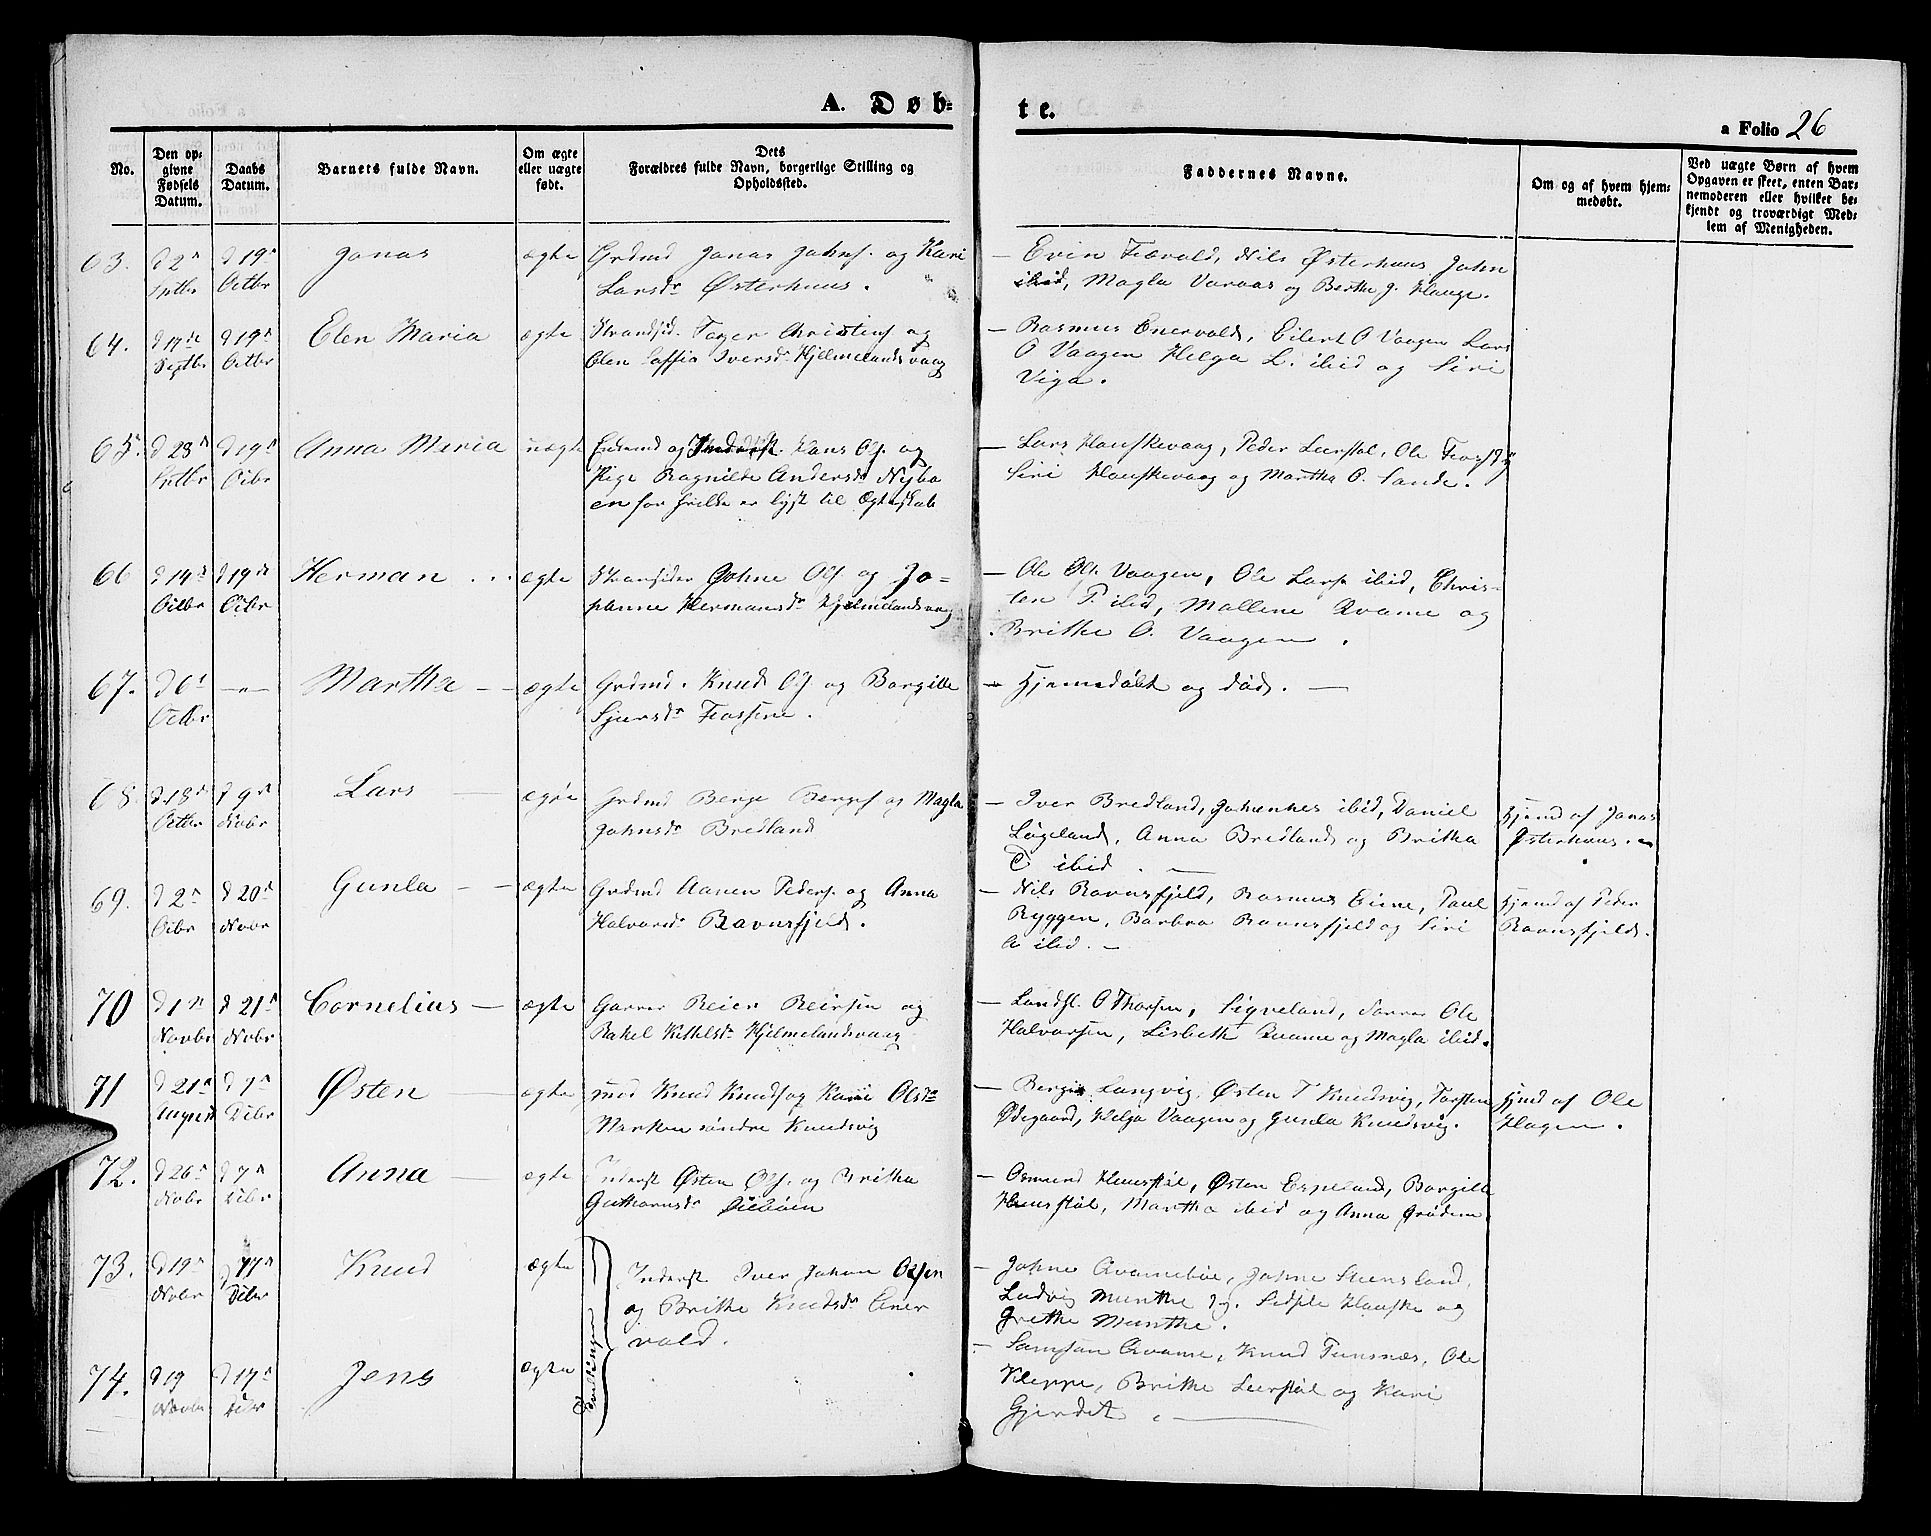 A. Døb-
te.
a Folio 26
No.
Den op-
givne
Fødsels
Datum.
Daabs
Datum.
Barnets fulde Navn.
Om ægte
eller uægte
født.
Dets
Forældres fulde Navn, borgerlige Stilling og
Opholdssted.
Faddernes Navne.
Om og af hvem hjem-
medøbt.
Ved uægte Børn af hvem
Opgaven er skeet, enten Bar-
nemoderen eller hvilket be-
kjendt og troværdigt Med-
lem af Menigheden.
63.
d 2n
Sptbr
d 19n
Octbr
Jonas
ægte
Grdmd Jonas Johns. og Kari
Larsdr Østerhuus.
— Evin Fævold, Nils Østerhuus, John
ibid, Magla Varaas og Berthe J. Hauge.
64.
Septbr
d 19n
Octbr
Elen Maria
ægte
Strandsid. Tager Christens og
Elen Soffia Iversdr Hjelmelandsvaag
— Rasmus Enervold, Eilert O Vaagen Lars
O Vaagen Helga L. ibid og Siri
Viga.
65.
d 28n
Sptbr
d 19n
Octbr
Anna Maria
uægte
Enkemd og Inderst. Hans Ols. og
Pige Ragnilde Andersdr Nybø
en for hvilke er lyst til Ægteskab
— Lars Hauskevaag, Peder Leerstøl, Ole
Siri Hauskevaag og Martha O. Sande.
66
d 14n
Octbr
d 19n
Octbr
Herman . . .
ægte
Stransider Johne Ols. og Jo-
hanne Hermansdr Hjelmelandsvaag
— Ole Ols. Vaagen, Ole Lars. ibid, Chris-
ten P. ibid, Mallene Qvame og
Brithe O. Vaagen.
67.
d 6n
Octbr
—"—
Martha —
ægte
Grdmd. Knud Ols og Borgille
Sjursdr Fossene.
— Hjemedøbt og død. —
68.
d. 18n
Octbr
d 9n
Novbr
Lars —
ægte
Grdmd Berge Bergs og Magla
Johnsdr Bredland
— Iver Bredland, Johannes ibid, Daniel
Løgeland, Anna Bredland og Britha
T ibid. —
Hjemd af Jonas
Østerhuus. —
69.
d 2n
Octbr
d 20n
Novbr
Gunla —
ægte
Grdmd Aanen Peders. og Anna
Halvorsdr Ravnsfjeld.
— Nils Ravnsfjeld, Rasmus Eiene, Paul
Ryggen, Barbra Ravnsfjeld og Siri
A ibid. —
Hjemd af Peder
Ravnsfjeld.
70
d 1n
Novbr
d 21n
Novbr
Cornelius —
ægte
Garver Reier Reiersen og
Rakel Kittelsdr Hjelmelandsvaag
— Landhl. O Thorsen, Sigveland, Farver Ole
Halvorsen, Lisbeth Qvame og Magla ibid.
71
d 21n
August
d 7n
Debr
Østen —
ægte
md Knud Knuds og Kari Olsdr
Marken søndre Knudsvig
— Berge Langvig, Østen T Knudsvig, Torsten
Ødegaard, Helga Vaagen og Gunla Knudsvig.
Hjmd af Ole
Hagen.
72.
d 26n
Novbr
d 7n
Debr
Anna —
ægte
Inderst Østen Ols. og Britha
Guthormsdr
— Osmund Huusstøl, Østen Espeland, Borgille
Huusstøl, Martha ibid og Anna Grødem
73.
d 19n
Novbr
d 17n
Debr
Knud
ægte
Tvillinger
Inderst Iver Johan Olsen
og Brithe Knudsdr Ener
vold.
— Johne Qvamebøe, Johne Steensland,
Ludvig Munthe jg. Sidsele Hauske og
Grethe Munthe.
74.
d 19
Novbr
d 17n
Debr
Jens
ægte
— Samson Qvame, Knud Tunsnæs, Ole
Kleppe, Brithe Leerstøl og Kari
Gjerdet. —